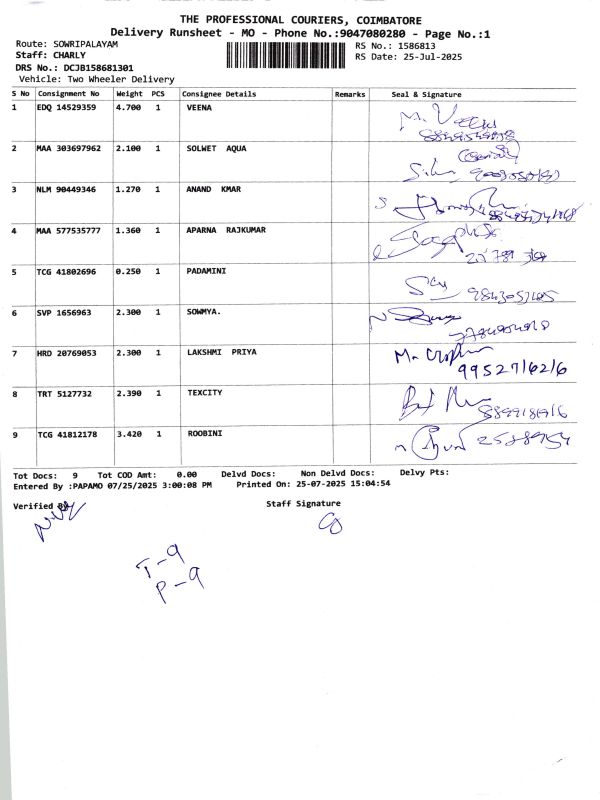 THE PROFESSIONAL COURIERS, COIMBATORE
Delivery Runsheet - MO - Phone No.:9047080280 - Page No.:1
Route: SOWRIPALAYAM RS No.: 1586813
Staff: CHARLY RS Date: 25-Jul-2025
DRS No.: DCJB158681301
Vehicle: Two Wheeler Delivery
S No Consignment No Weight PCS Consignee Details Remarks Seal & Signature
1 EDQ 14529359 4.700 1 VEENA
2 MAA 303697962 2.100 1 SOLWET AQUA
3 NLM 90449346 1.270 1 ANAND KMAR
4 MAA 577535777 1.360 1 APARNA RAJKUMAR
5 TCG 41802696 0.250 1 PADAMINI
6 SVP 1656963 2.300 1 SOWMYA.
7 HRD 20769053 2.300 1 LAKSHMI PRIYA
9952716216
8 TRT 5127732 2.390 1 TEXCITY
9 TCG 41812178 3.420 1 ROOBINI
Tot Docs: 9 Tot COD Amt: 0.00 Delvd Docs: Non Delvd Docs: Delvy Pts:
Entered By :PAPAMO 07/25/2025 3:00:08 PM Printed On: 25-07-2025 15:04:54
Verified By Staff Signature
T-9
P-9